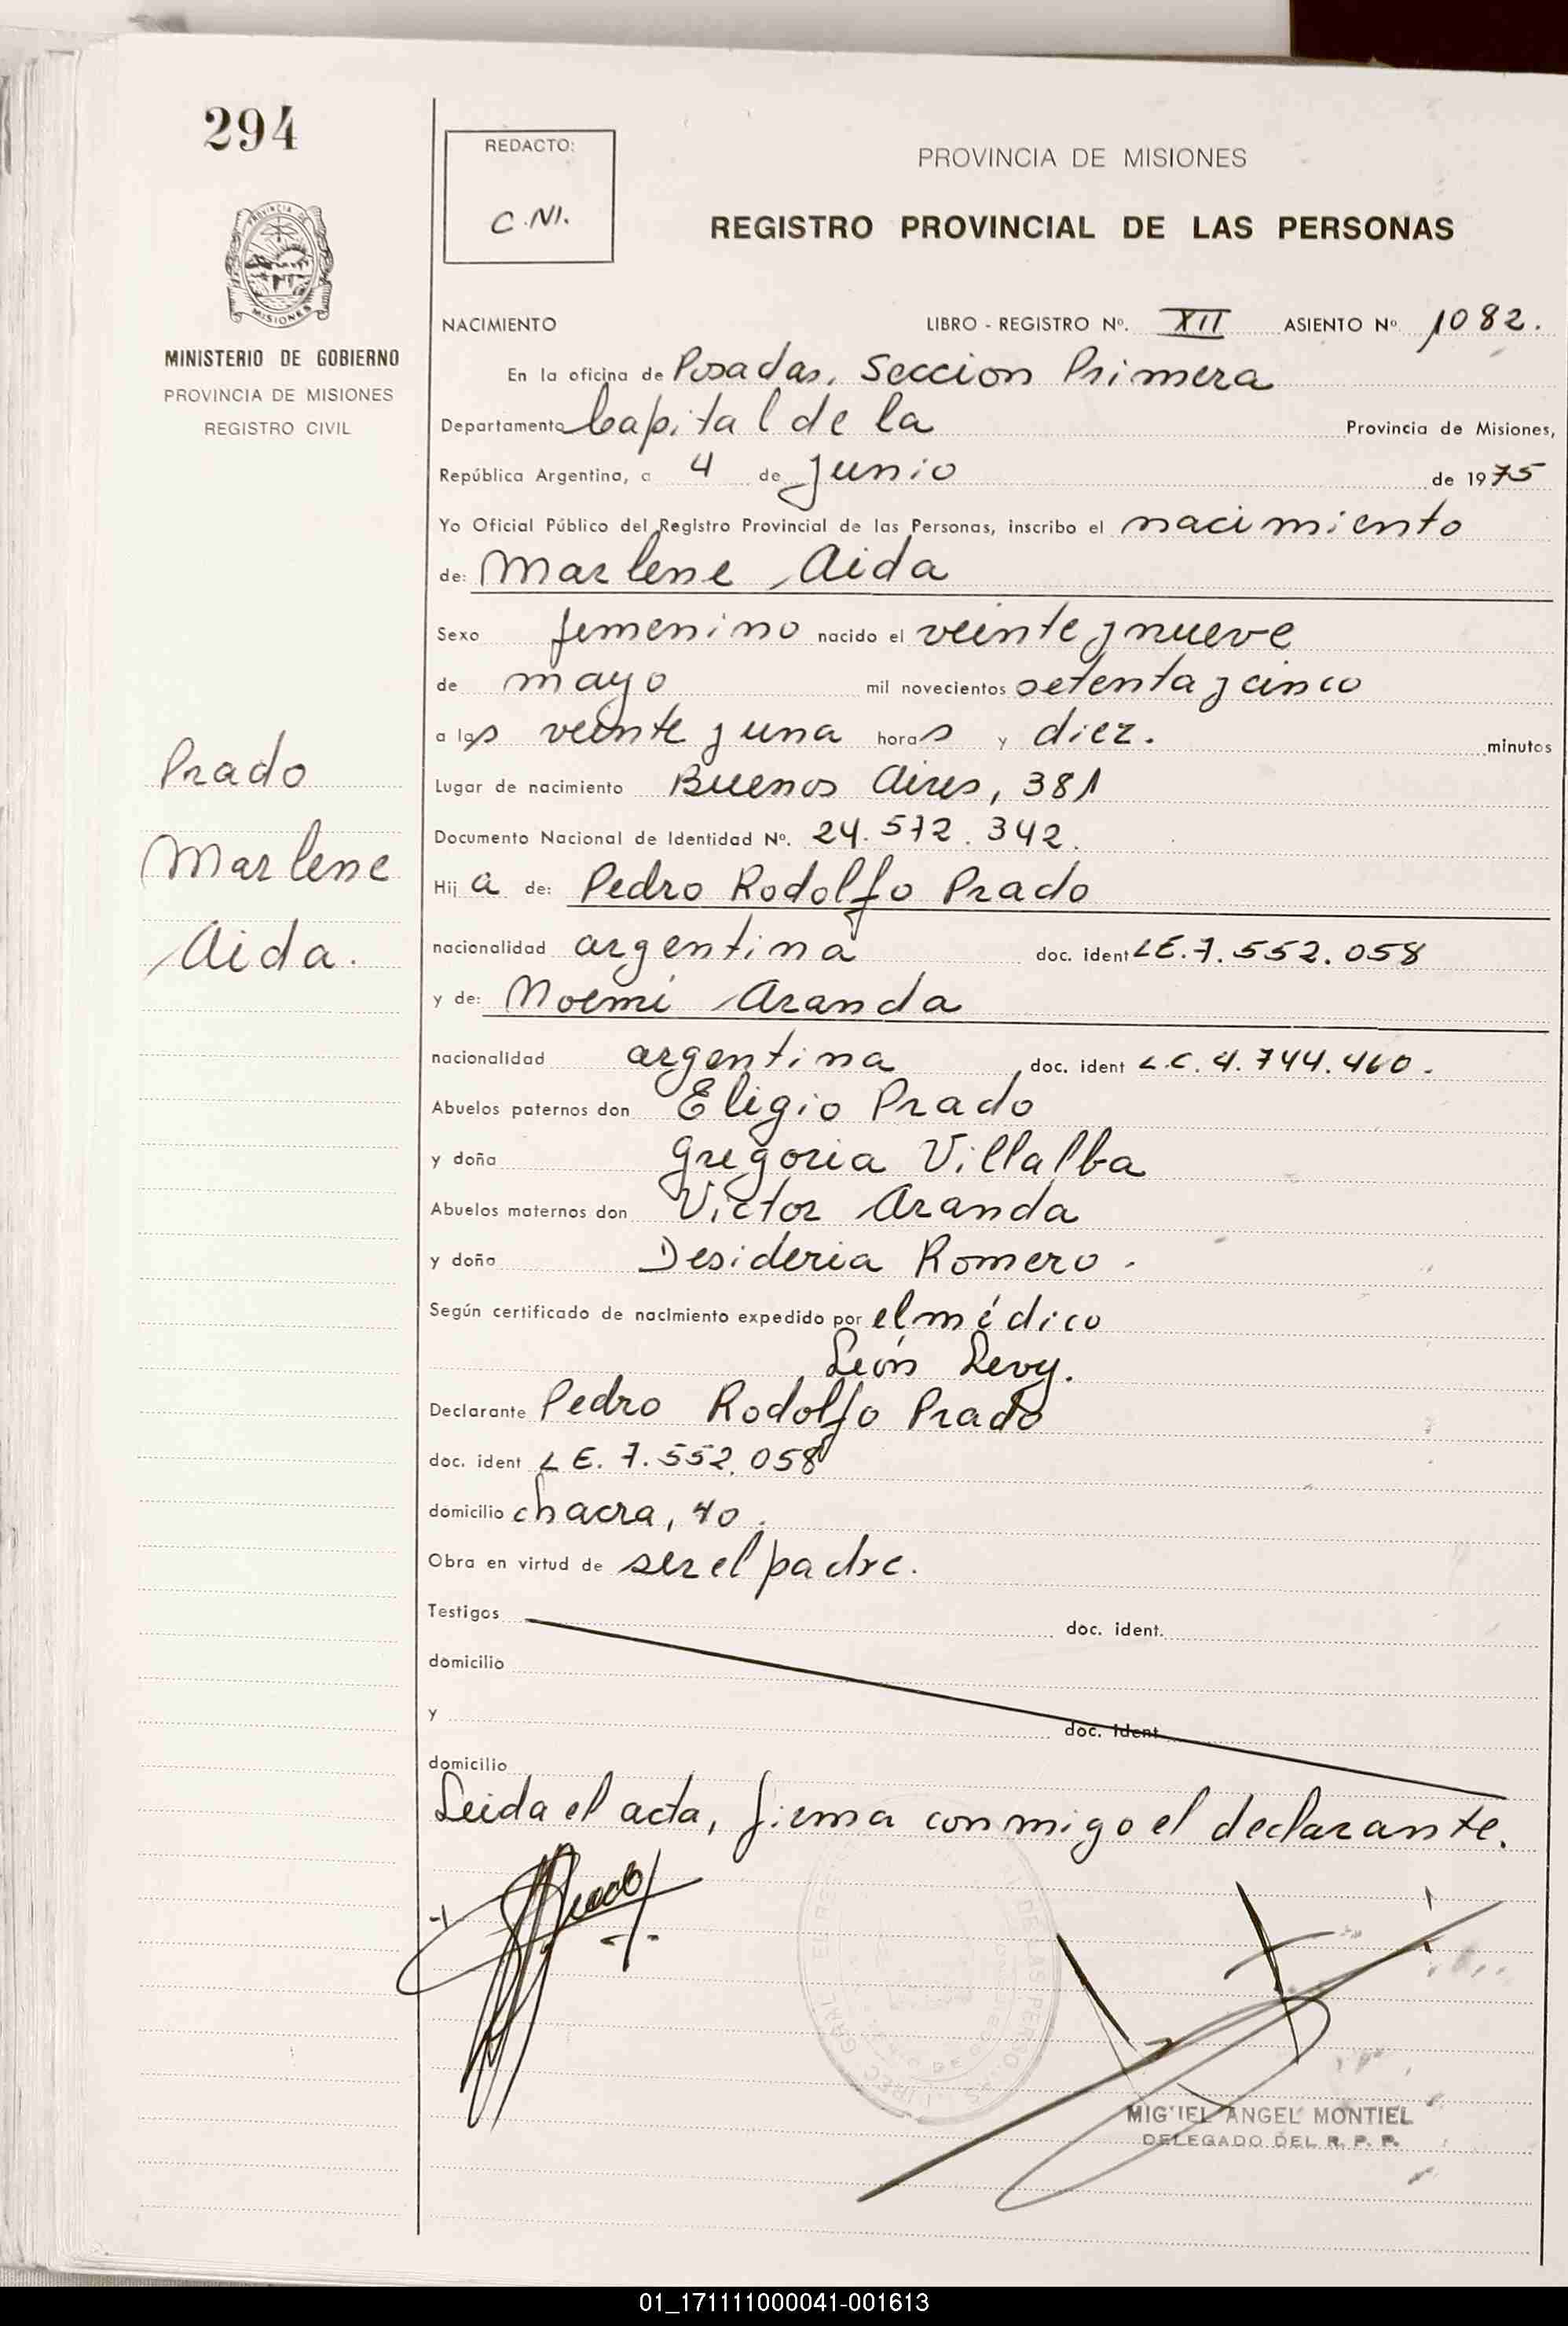 294
REDACTO:
C.NI.
PROVINCIA DE MISIONES
REGISTRO PROVINCIAL DE LAS PERSONAS
PROVINCIA DE
MISIONES
MINISTERIO DE GOBIERNO
PROVINCIA DE MISIONES
REGISTRO CIVIL
NACIMIENTO LIBRO - REGISTRO Nº. XII ASIENTO Nº 1082.
En la oficina de Posadas, Seccion Primera
Departamento Capital de la Provincia de Misiones,
República Argentina, a 4 de Junio de 1975
Yo Oficial Público del Registro Provincial de las Personas, inscribo el nacimiento
de: Marlene Aida
Sexo femenino nacido el veinte y nueve
de mayo mil novecientos setenta y cinco
a las veinte y una horas y diez. minutos
Prado
Marlene
Aida.
Lugar de nacimiento Buenos Aires, 381
Documento Nacional de Identidad Nº. 24.572.342.
Hij a de: Pedro Rodolfo Prado
nacionalidad argentina doc. ident LE.7.552.058
y de: Noemi Aranda
nacionalidad argentina doc. ident L.C. 4.744.460.
Abuelos paternos don Eligio Prado
y doña Gregoria Villalba
Abuelos maternos don Victor Aranda
y doña Desideria Romero.
Según certificado de nacimiento expedido por el médico
León Levy.
Declarante Pedro Rodolfo Prado
doc. ident LE. 7.552.058
domicilio chacra, 40.
Obra en virtud de ser el padre.
Testigos doc. ident.
domicilio
y doc. ident
domicilio
Leida el acta, firma conmigo el declarante.
Prado
MIGUEL ANGEL MONTIEL
DELEGADO DEL R. P. P.
01_171111000041-001613